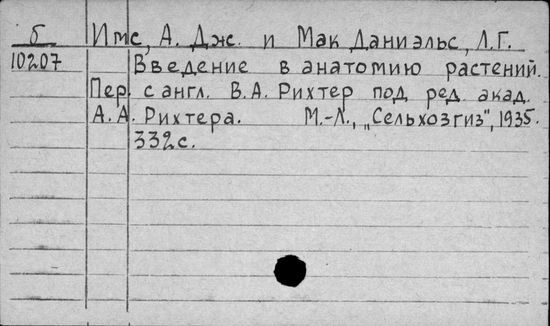 б
Имс, А. Дж. и Мак Даниэльс, Л.Г.
10207
Введение в анатомию растений.
Пер. с англ. В.А. Рихтер под ред. акад.
А.А. Рихтера. М.-Л., „Сельхозгиз", 1935.
332с.